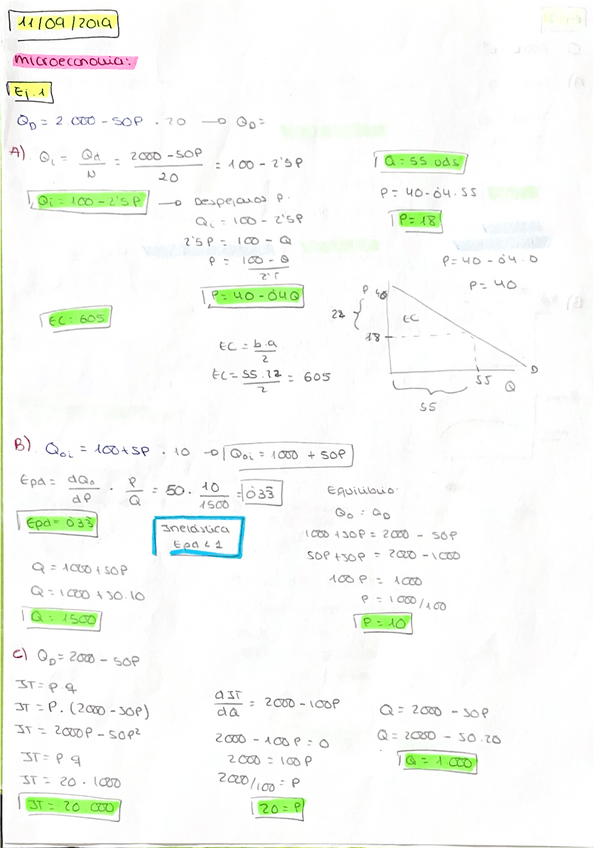 11/09/2019
microeconomia:
Ej. 1
Q_D = 2.000 - 50P · 20 → Q_D =
A) Q_i = Q_d / N = 2000 - 50P / 20 = 100 - 2'5P
Q_i = 100 - 2'5P → Despejamos P.
Q_i = 100 - 2'5P
2'5P = 100 - Q
P = 100 - Q / 2'5
P = 40 - 0'4Q
Q = 55 uds
P = 40 - 0'4 · 55
P = 18
P = 40 - 0'4 · 0
P = 40
EC = 605
EC = b·a / 2
EC = 55·22 / 2 = 605
P
40
22
EC
18
55
Q
D
55
B) Q_oi = 100 + 5P · 10 → Q_oi = 1000 + 50P
Epd = dQ_o / dP · P / Q = 50 · 10 / 1500 = 0'33
Epd = 0'33
Inelástica
Epd < 1
Q = 1000 + 50P
Q = 1000 + 50·10
Q = 1500
Equilibrio:
Q_o = Q_D
1000 + 50P = 2000 - 50P
50P + 50P = 2000 - 1000
100P = 1000
P = 1000/100
P = 10
C) Q_D = 2000 - 50P
IT = P q
IT = P · (2000 - 50P)
IT = 2000P - 50P²
IT = P q
IT = 20 · 1000
IT = 20 000
dIT / dQ = 2000 - 100P
2000 - 100P = 0
2000 = 100P
2000/100 = P
20 = P
Q = 2000 - 50P
Q = 2000 - 50·20
Q = 1 000